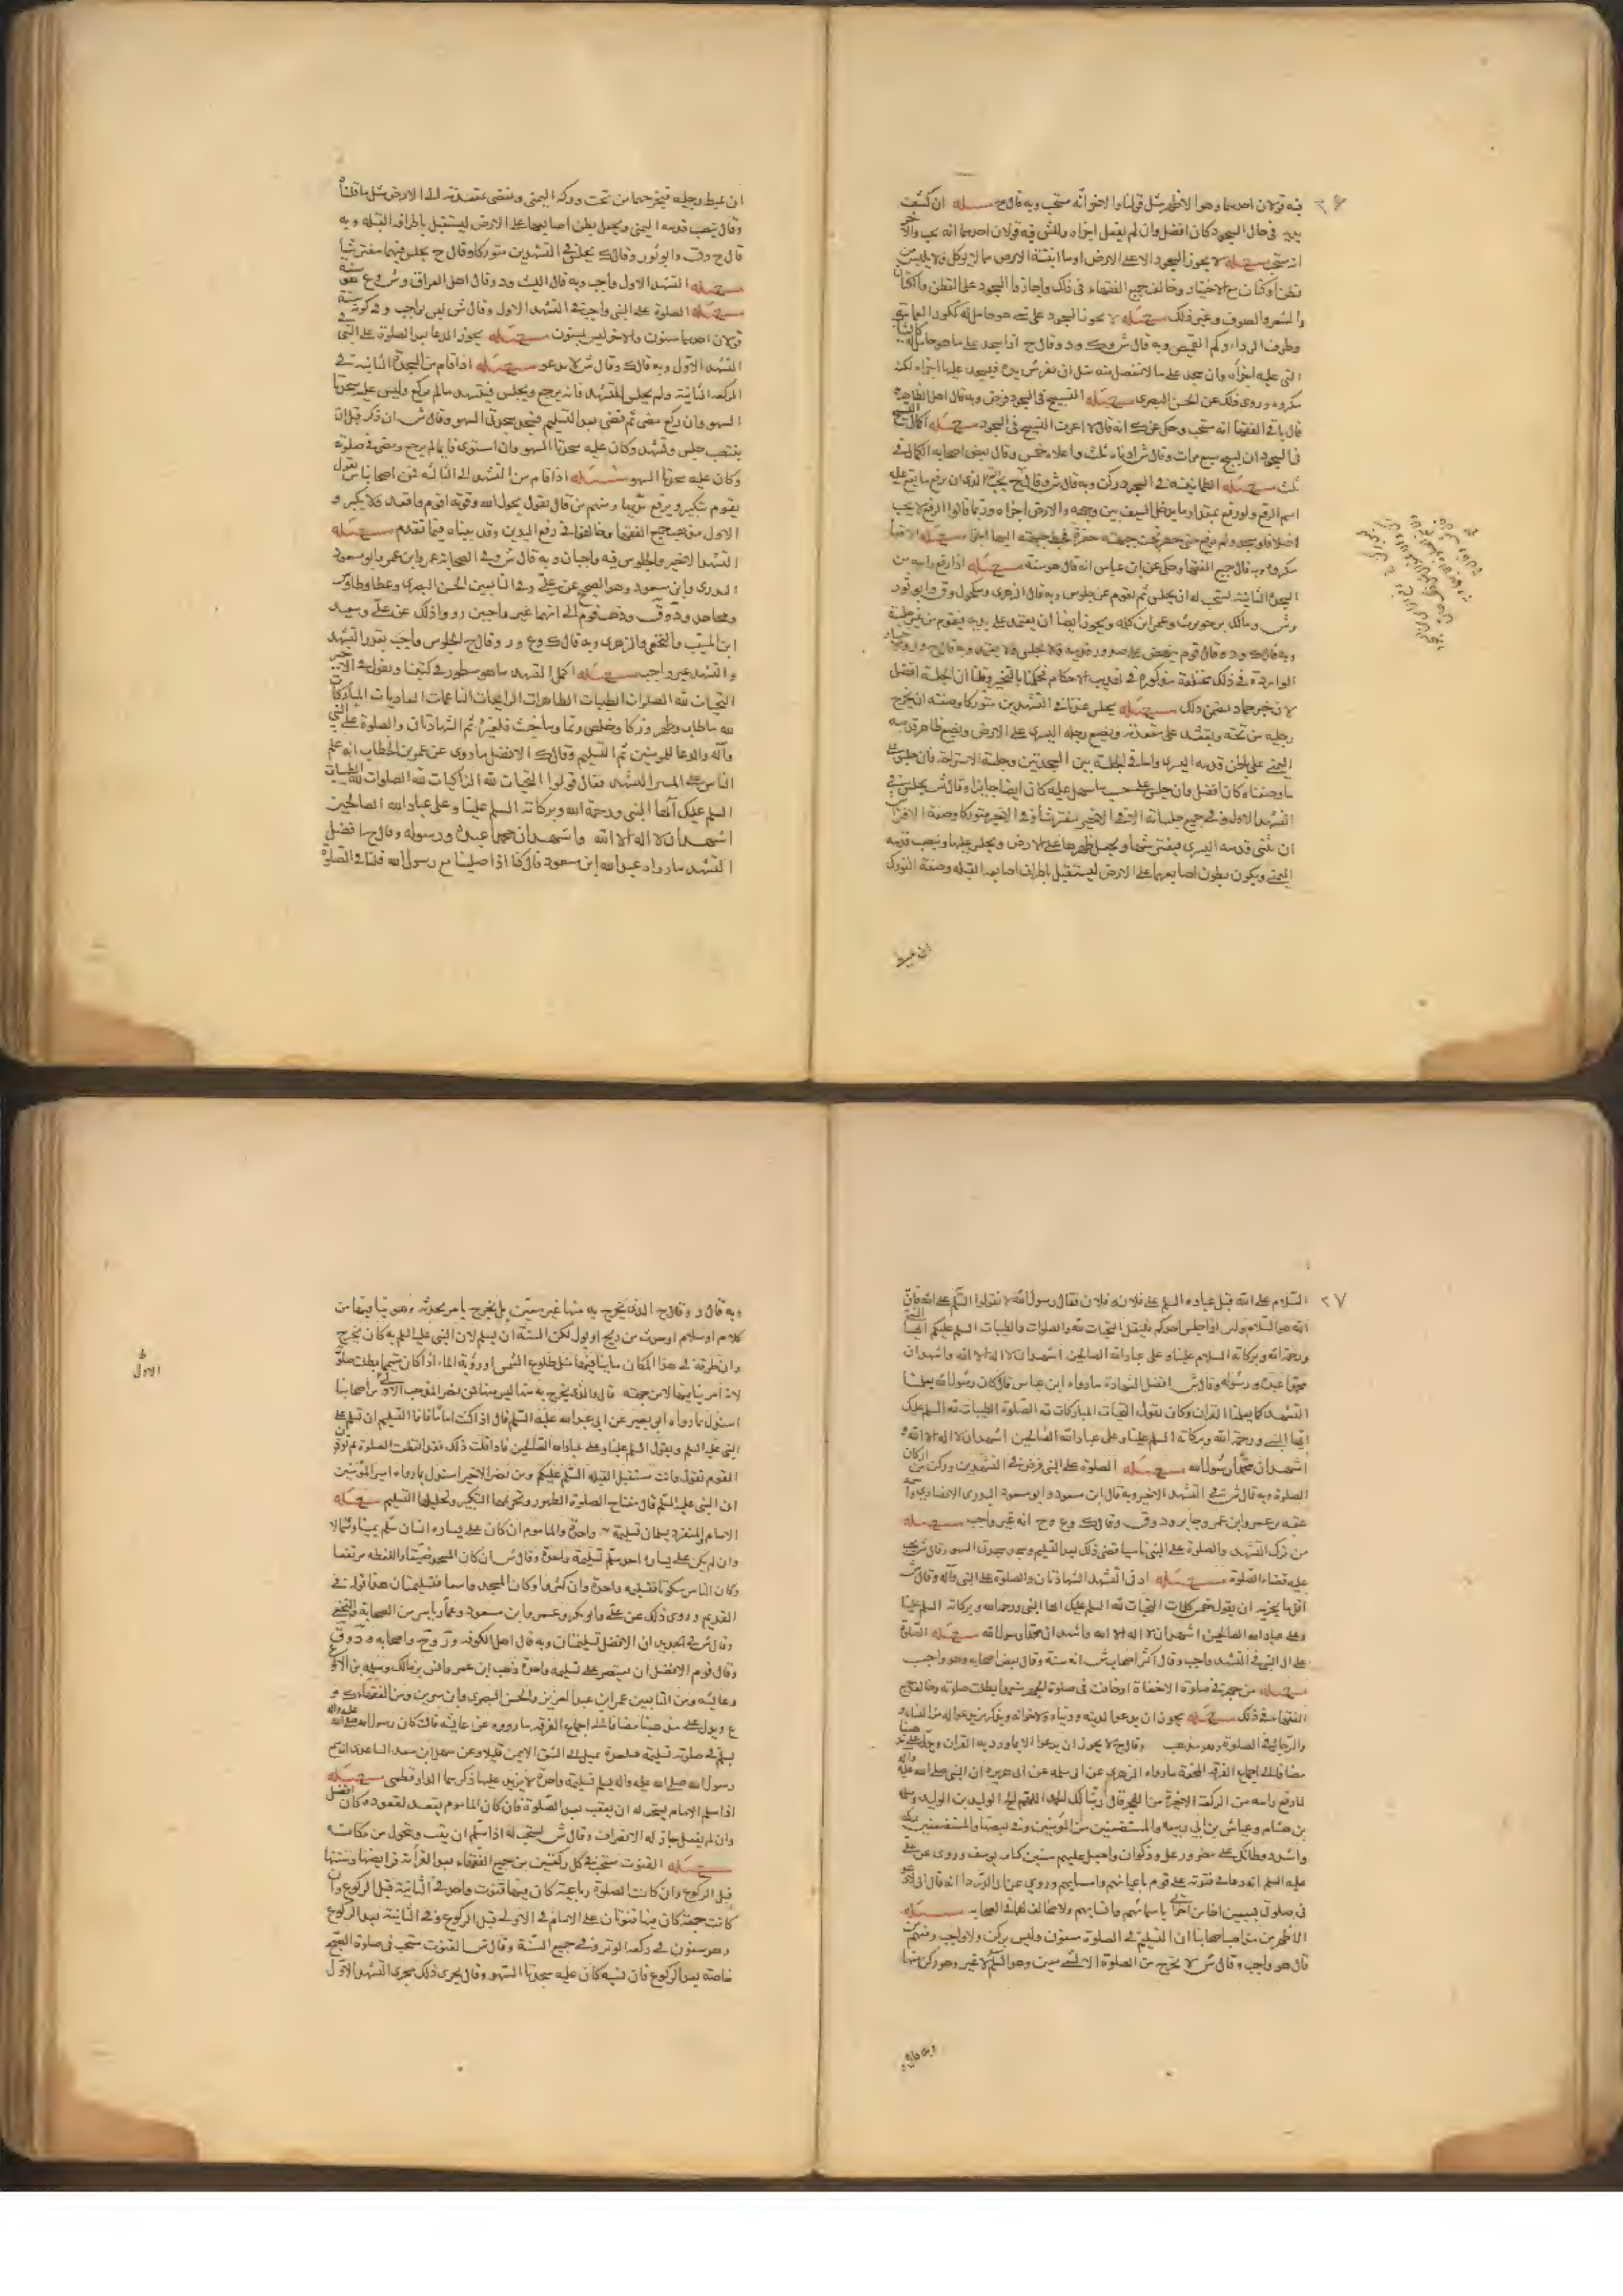 فيه قولان احدهما وهو الاظهر مثل قولنا والاخر انه مستحب وبه قال ح مسئله ان كشف
يديه في حال السجود كان افضل وان لم يفعل اجزاه وللش فيه قولان احدهما انه يجب والاخر
انه مستحب مسئله لا يجوز السجود الا على الارض او ما انبتته الارض مما لا يوكل ولا يلبس من
قطن او كتان مع الاختيار وخالف جميع الفقهاء في ذلك واجازوا السجود على القطن والكتان
والشعر والصوف وغير ذلك مسئله لا يجوز السجود على شي هو حامل له ككور العمامة
وطرف الرداء وكم القميص وبه قال ش وروى ود وقال ح اذا سجد على ما هو حامل له كالثياب
التي عليه اجزاه وان سجد على ما لا ينفصل منه مثل ان يفترش يده فيسجد عليها اجزاه لكنه
مكروه وروى ذلك عن الحسن البصرى مسئله التسبيح في السجود فرض وبه قال اهل الظاهر
قال باقي الفقها انه مستحب وحكى عن ك انه قال لا اعرف التسبيح في السجود مسئله اكمال التسبيح
في السجود ان يسبح سبع مرات وقال ش ادناه ثلث واعلاه خمس وقال بعض اصحابه الكمال في
ثلث مسئله الطمانينة في السجود ركن وبه قال ش وقال ح يجب الذى ان يرفع ما يقع عليه
اسم الرفع ولو رفع بمقدار ما يدخل السيف بين وجهه والارض اجزاه وربما قالوا الرفع لا يجب
اصلا فلو سجد ولم يرفع حتى حفر تحت جبهته حفرة فحط جبهته اليها اجزاه مسئله الاقعاء
مكروه وبه قال جميع الفقها وحكى عن ابن عباس انه قال هو سنة مسئله اذا رفع راسه من
السجدة الثانية يستحب له ان يجلس ثم يقوم عن جلوس وبه قال الزهرى ومكحول وق وابو ثور
وش ومالك بن حويرث وعمرو بن سلمه ويجوز ايضا ان يعتمد على يديه فيقوم من غير جلسة
وبه قال ك ود وقال قوم ينهض على صدور قدميه ولا يجلس ولا يعتمد وبه قال ح
الواردة في ذلك مختلفة مذكورة في تهذيب الاحكام فحكمنا بالتخير وقلنا ان الجلسة افضل
لان خبر حماد تضمن ذلك مسئله يجلس عندنا في التشهدين متوركا وصفته ان يخرج
رجليه من تحته ويقعد على مقعدته ويضع رجله اليسرى على الارض ويضع ظاهر قدمه
اليمنى على باطن قدمه اليسرى واما في الجلسة بين السجدتين وجلسة الاستراحة فان جلس على
ما وصفناه كان افضل وان جلس على حسب ما سهل عليه كان ايضا جايزا وقال ش يجلس في
التشهد الاول وفي جميع جلساته الا في الاخير مفترشا وفي الاخير متوركا وصفة الافتراش
ان يثنى قدمه اليسرى فيفترشها ويجعل ظهرها على الارض ويجلس عليها وينصب قدمه
اليمنى ويكون بطون اصابعها على الارض ليستقبل باطراف اصابعه القبله وصفة التورك
ان يميط
ان يميط رجليه فيخرجهما من تحت وركه اليمنى ويفضى بمقعدته الى الارض مثل ما قلناه
وقال ينصب قدمه اليمنى ويجعل بطن اصابعها على الارض ليستقبل باطرافه القبله وبه
قال ح ود وق وابو ثور وقال ك يجلس في التشهدين متوركا وقال ح يجلس فيهما مفترشا
مسئله التشهد الاول واجب وبه قال الليث ود وق وقال اهل العراق وش وع هو سنة
مسئله الصلوة على النبي واجبة في التشهد الاول وقال ش ليس بواجب وفي كونه سنة
قولان احدهما مسنون والاخر ليس بمسنون مسئله يجوز الدعا بعد الصلوة على النبي في
التشهد الاول وبه قال ك وقال ش لا يدعو مسئله اذا قام من السجدة الثانية في
الركعه الثانية ولم يجلس للتشهد فانه يرجع ويجلس فيتشهد ما لم يركع وليس عليه سجدتا
السهو وان ركع مضى ثم قضى بعد التسليم فسجد سجدتى السهو وقال ش ان ذكر قبل ان
ينتصب جلس وتشهد وكان عليه سجدتا السهو وان استوى قايما لم يرجع ومضى في صلوته
وكان عليه سجدتا السهو مسئله اذا قام من التشهد الى الثالثه فمن اصحابنا من يقول
يقوم بتكبير ويرفع بها يديه ومنهم من قال يقول بحول الله وقوته اقوم واقعد ولا يكبر و
الاول مذهب جميع الفقها وخالفوا في رفع اليدين وقد بيناه فيما تقدم مسئله
التشهد الاخير والجلوس فيه واجبان وبه قال ش وفي الصحابة عمر وابن عمر وابو مسعود
البدرى وابن مسعود وهو الصحيح عن على وفي التابعين الحسن البصرى وعطا وطاوس
ومجاهد ود وق وذهب قوم الى انهما غير واجبين رووا ذلك عن على وسعيد
ابن المسيب والنخعى والزهرى وبه قال ك وع ور وقال ح الجلوس واجب بقدر التشهد
والتشهد غير واجب مسئله اكمل التشهد ما هو مسطور في كتبنا ويقول في الاخير
التحيات لله الصلوات الطيبات الطاهرات الزاكيات الناعمات الغاديات المباركات
لله ما طاب وطهر وزكا وخلص ونما وما خبث فلغيره ثم الشهادتان والصلوة على النبي
وآله والدعا للمؤمنين ثم التسليم وقال ك الافضل ما روى عن عمر بن الخطاب انه علم
الناس على المنبر التشهد فقال قولوا التحيات لله الزاكيات لله الصلوات لله الطيبات
السلم عليك ايها النبي ورحمة الله وبركاته السلم علينا وعلى عباد الله الصالحين
اشهد ان لا اله الا الله واشهد ان محمدا عبده ورسوله وقال ح افضل
التشهد ما رواه عبد الله ابن مسعود قال كنا اذا صلينا مع رسول الله قلنا في الصلوة
٢٧
السلام على الله قبل عباده السلم على فلان وفلان فقال رسول الله لا تقولوا السلم على الله فان
الله هو السلام ولكن اذا جلس احدكم فليقل التحيات لله والصلوات والطيبات السلم عليكم ايها النبي
ورحمة الله وبركاته السلام علينا وعلى عباد الله الصالحين اشهد ان لا اله الا الله واشهد ان
محمدا عبده ورسوله وقال ش افضل الشهادة ما رواه ابن عباس قال كان رسول الله يعلمنا
التشهد كما يعلمنا القرآن وكان يقول التحيات المباركات لله الصلوة الطيبات لله السلم عليك
ايها النبي ورحمة الله وبركاته السلم علينا وعلى عباد الله الصالحين اشهد ان لا اله الا الله و
اشهد ان محمدا رسول الله مسئله الصلوة على النبي فرض في التشهدين وركن من اركان
الصلوة وبه قال ش في التشهد الاخير وبه قال ابن مسعود وابو مسعود البدرى الانصارى واسمه
عقبه بن عمرو وابن عمر وجابر ود وق وقال ك وع وح انه غير واجب مسئله
من ترك التشهد والصلوة على النبي ناسيا قضى ذلك بعد التسليم وسجد سجدتى السهو وقال ش يجب
عليه قضاء الصلوة مسئله ادنى التشهد الشهادتان والصلوة على النبي وآله وقال ش
اقل ما يجزيه ان يقول خمس كلمات التحيات لله السلم عليك ايها النبي ورحمة الله وبركاته السلم علينا
وعلى عباد الله الصالحين اشهد ان لا اله الا الله واشهد ان محمدا رسول الله مسئله الصلوة
على ال النبي في التشهد واجب وقال اكثر اصحاب ش انه سنة وقال بعض اصحابه وهو واجب
مسئله من جهر في صلوة الاخفاة او خافت في صلوة الجهر متعمدا بطلت صلوته وخالف جميع
الفقهاء في ذلك مسئله يجوز ان يدعوا لدينه ودنياه ولاخوانه ويذكر من يدعوا له من النساء و
والرجال في الصلوة وهو مذهب وقال ح لا يجوز ان يدعوا الا بما ورد به القرآن
مضافا الى اجماع الفرقه المحقة ما رواه الزهرى عن ابى سلمه عن ابى هريرة ان النبي صلى الله عليه وآله
لما رفع راسه من الركعة الاخيرة من الفجر قال ربنا لك الحمد اللهم انج الوليد بن الوليد وسلمه
بن هشام وعياش بن ابي ربيعه والمستضعفين من المؤمنين
واشدد وطأتك على مضر ورعل وذكوان واجعل عليهم سنين كسنى يوسف وروى عن على
عليه السلم انه دعا في قنوته على قوم باعيانهم واسمايهم وروى عن ابى الدردا انه قال انى لادعو
في صلوتى لسبعين اخا من اخوانى باسمائهم وانسابهم ولا مخالف لهما في الصحابه مسئله
الاظهر من مذاهب اصحابنا ان التسليم في الصلوة مسنون وليس بركن ولا واجب ومنهم من
قال هو واجب وقال ش لا يخرج من الصلوة الا بشى معين وهو السلم لا غير وهو ركن منها
وبه قال
وبه قال ر وقال ح الذى يخرج به منها غير معين بل يخرج بامر يحدثه وهو ينافيها من
كلام او سلام او حدث من ريح او بول لكن السنة ان يسلم لان النبي عليه السلم به كان يخرج
وان طرق في هذا المكان ما ينافيها مثل طلوع الشمس او رؤية الماء اذا كان متيمما بطلت صلوته
لانه امر ينافيها لا من جهته قال والذى يخرج به منها ليس منها فمن نصر المذهب الاول من اصحابنا
استدل بما رواه ابى بصير عن ابى عبد الله عليه السلم قال اذا كنت اماما فانما التسليم ان تسلم على
النبي عليه السلم ويقول السلم علينا وعلى عباد الله الصالحين فاذا قلت ذلك فقد انقطعت الصلوة ثم تؤذن
القوم تقول وانت مستقبل القبله السلم عليكم ومن نصر الاخير استدل بما رواه امير المؤمنين
ان النبي عليه السلم قال مفتاح الصلوة الطهور وتحريمها التكبير وتحليلها التسليم مسئله
الامام والمنفرد يسلمان تسليمة واحدة والماموم ان كان على يساره انسان سلم يمينا وشمالا
وان لم يكن على يساره احد سلم تسليمة واحدة وقال ش ان كان المسجد ضيقا واللغط مرتفعا
وكان الناس سكوتا فتسليمه واحدة وان كثروا وكان المسجد واسعا فتسليمتان هذا قوله في
القديم وروى ذلك عن على وابى بكر وعمر وابن مسعود وعمار بن ياسر من الصحابة والنخعى
وقال ش في الجديد ان الافضل تسليمتان وبه قال اهل الكوفه ور وح واصحابه ود وق
وقال قوم الافضل ان يقتصر على تسليمة واحدة ذهب ابن عمر وانس بن مالك وسلمه بن الاكوع
وعايشه ومن التابعين عمر بن عبد العزيز والحسن البصرى وابن سيرين ومن الفقهاء ك و
ع ويدل على مذهبنا مضافا الى اجماع الفرقه ما رووه عن عايشه قالت كان رسول الله صلى الله عليه وآله
يسلم في صلوته تسليمة واحدة يميل الى الشق الايمن قليلا وعن سهل ابن سعد الساعدى انه سمع
رسول الله صلى الله عليه وآله يسلم تسليمة واحدة لا يزيد عليها ذكرهما الدارقطنى مسئله
اذا سلم الامام يستحب له ان يعقب بعد الصلوة فان كان الماموم يقعد لقعوده كان افضل
وان لم يفعل جاز له الانصراف وقال ش يستحب له اذا سلم ان يقف ويتحول من مكانه
مسئله القنوت مستحب في كل ركعتين من جميع الفرائض بعد القراءة فرايضها وسننها
قبل الركوع وان كانت الصلوة رباعية كان فيها قنوت واحد في الثانية قبل الركوع وان
كانت جمعة كان فيها قنوتان على الامام في الاولى قبل الركوع وفي الثانية بعد الركوع
وهو مسنون في ركعة الوتر وفي جميع السنة وقال ش القنوت مستحب في صلوة الصبح
خاصة بعد الركوع فان نسيه كان عليه سجدتا السهو وقال يجرى ذلك مجرى التشهد الاول
الاول